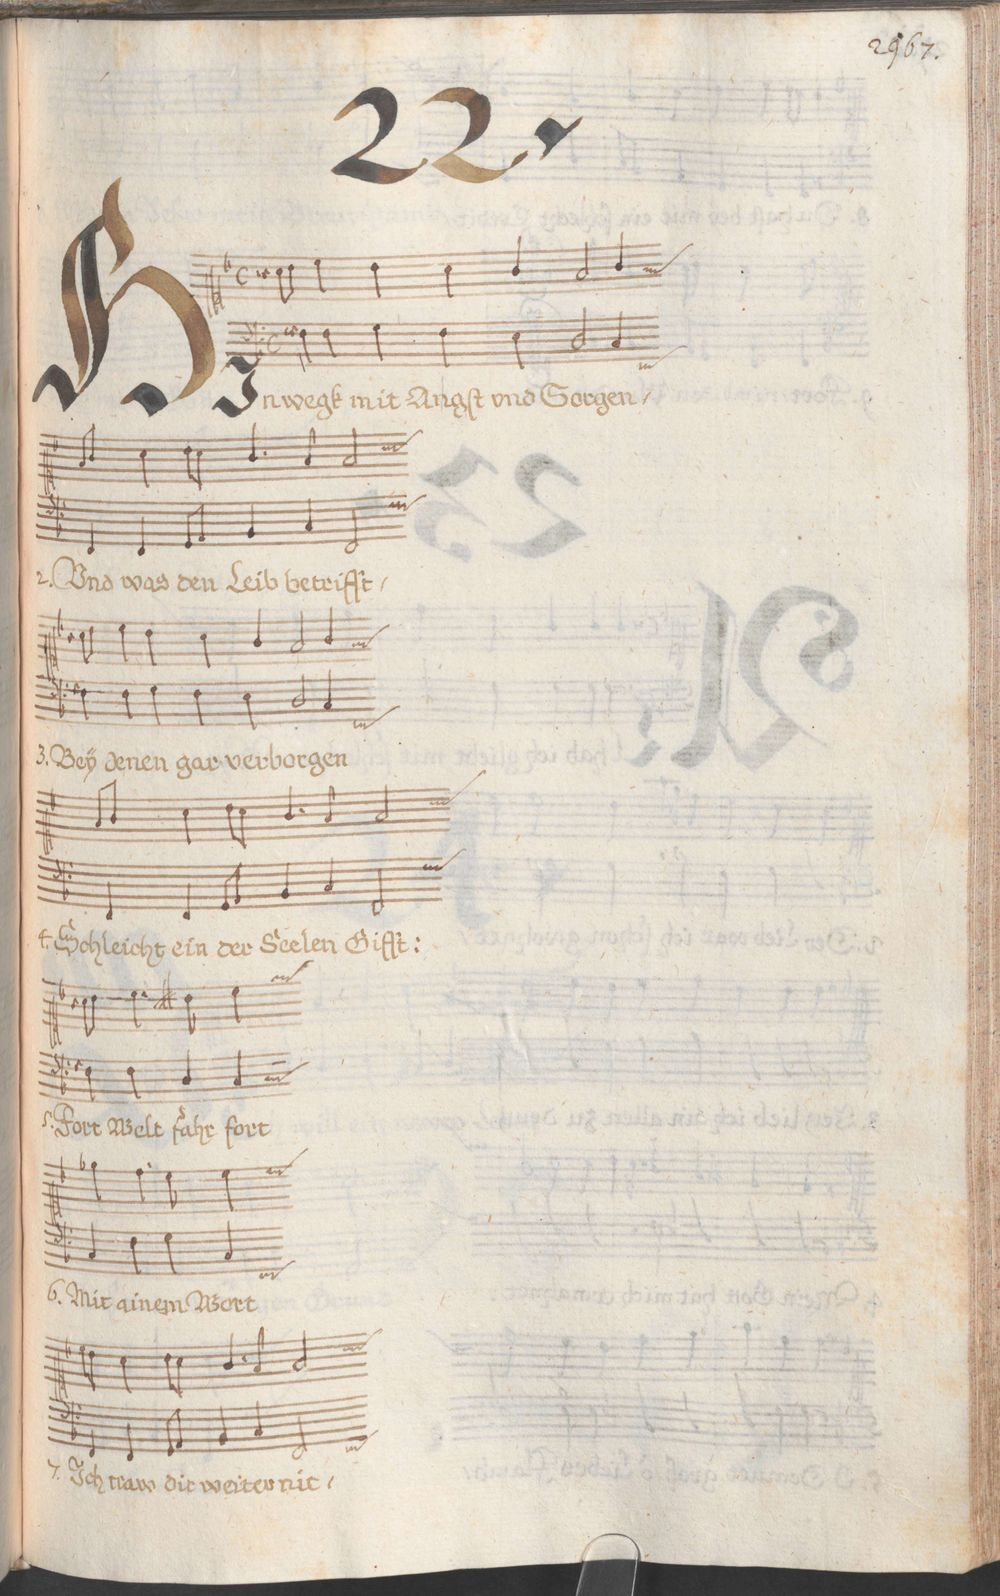 2967.
22.
HInwegk mit Angst vnd Sorgen /
2. Vnd was den Leib betrifft /
3. Beÿ denen gar verborgen
4. Schleicht ein der Seelen Gifft :
5. Fort Welt fahr fort
6. Mit ainem Wort
7. Ich traw dir weiter nit /